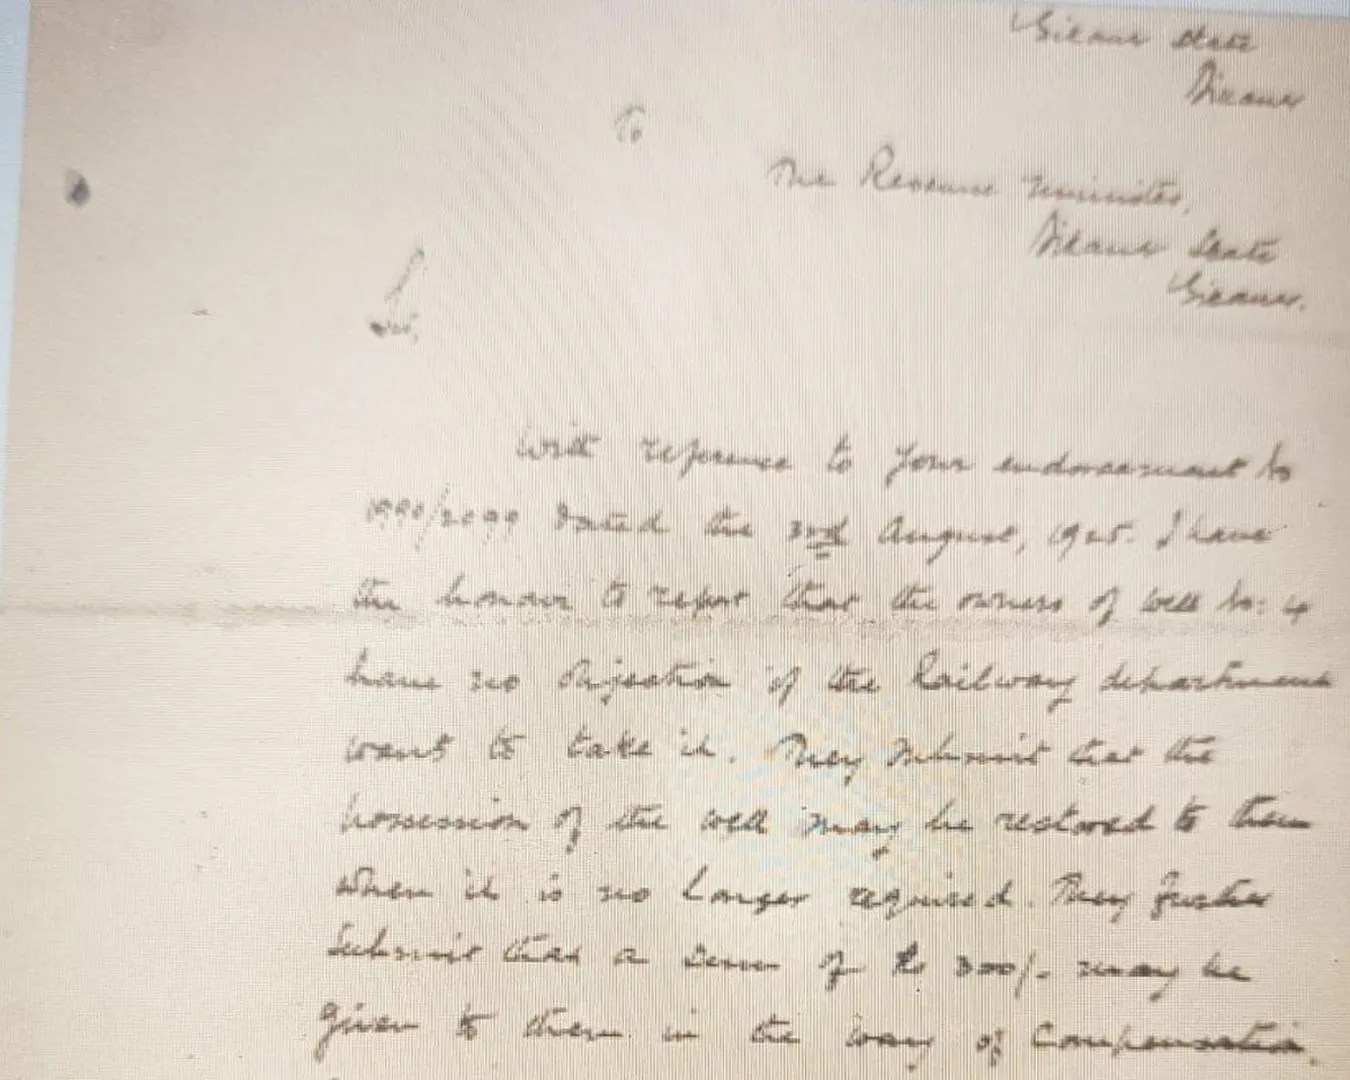 Bikaner State
Bikaner
To
The Revenue Minister,
Bikaner State
Bikaner.
Sir,
With reference to your endorsement No
dated the 3rd August, 1925. I have
the honour to report that the owners of well No: 4
have no objection if the Railway department
want to take it. They submit that the
possession of the well may be restored to them
when it is no longer required. They further
submit that a sum of Rs 300/- may be
given to them in the way of Compensation.